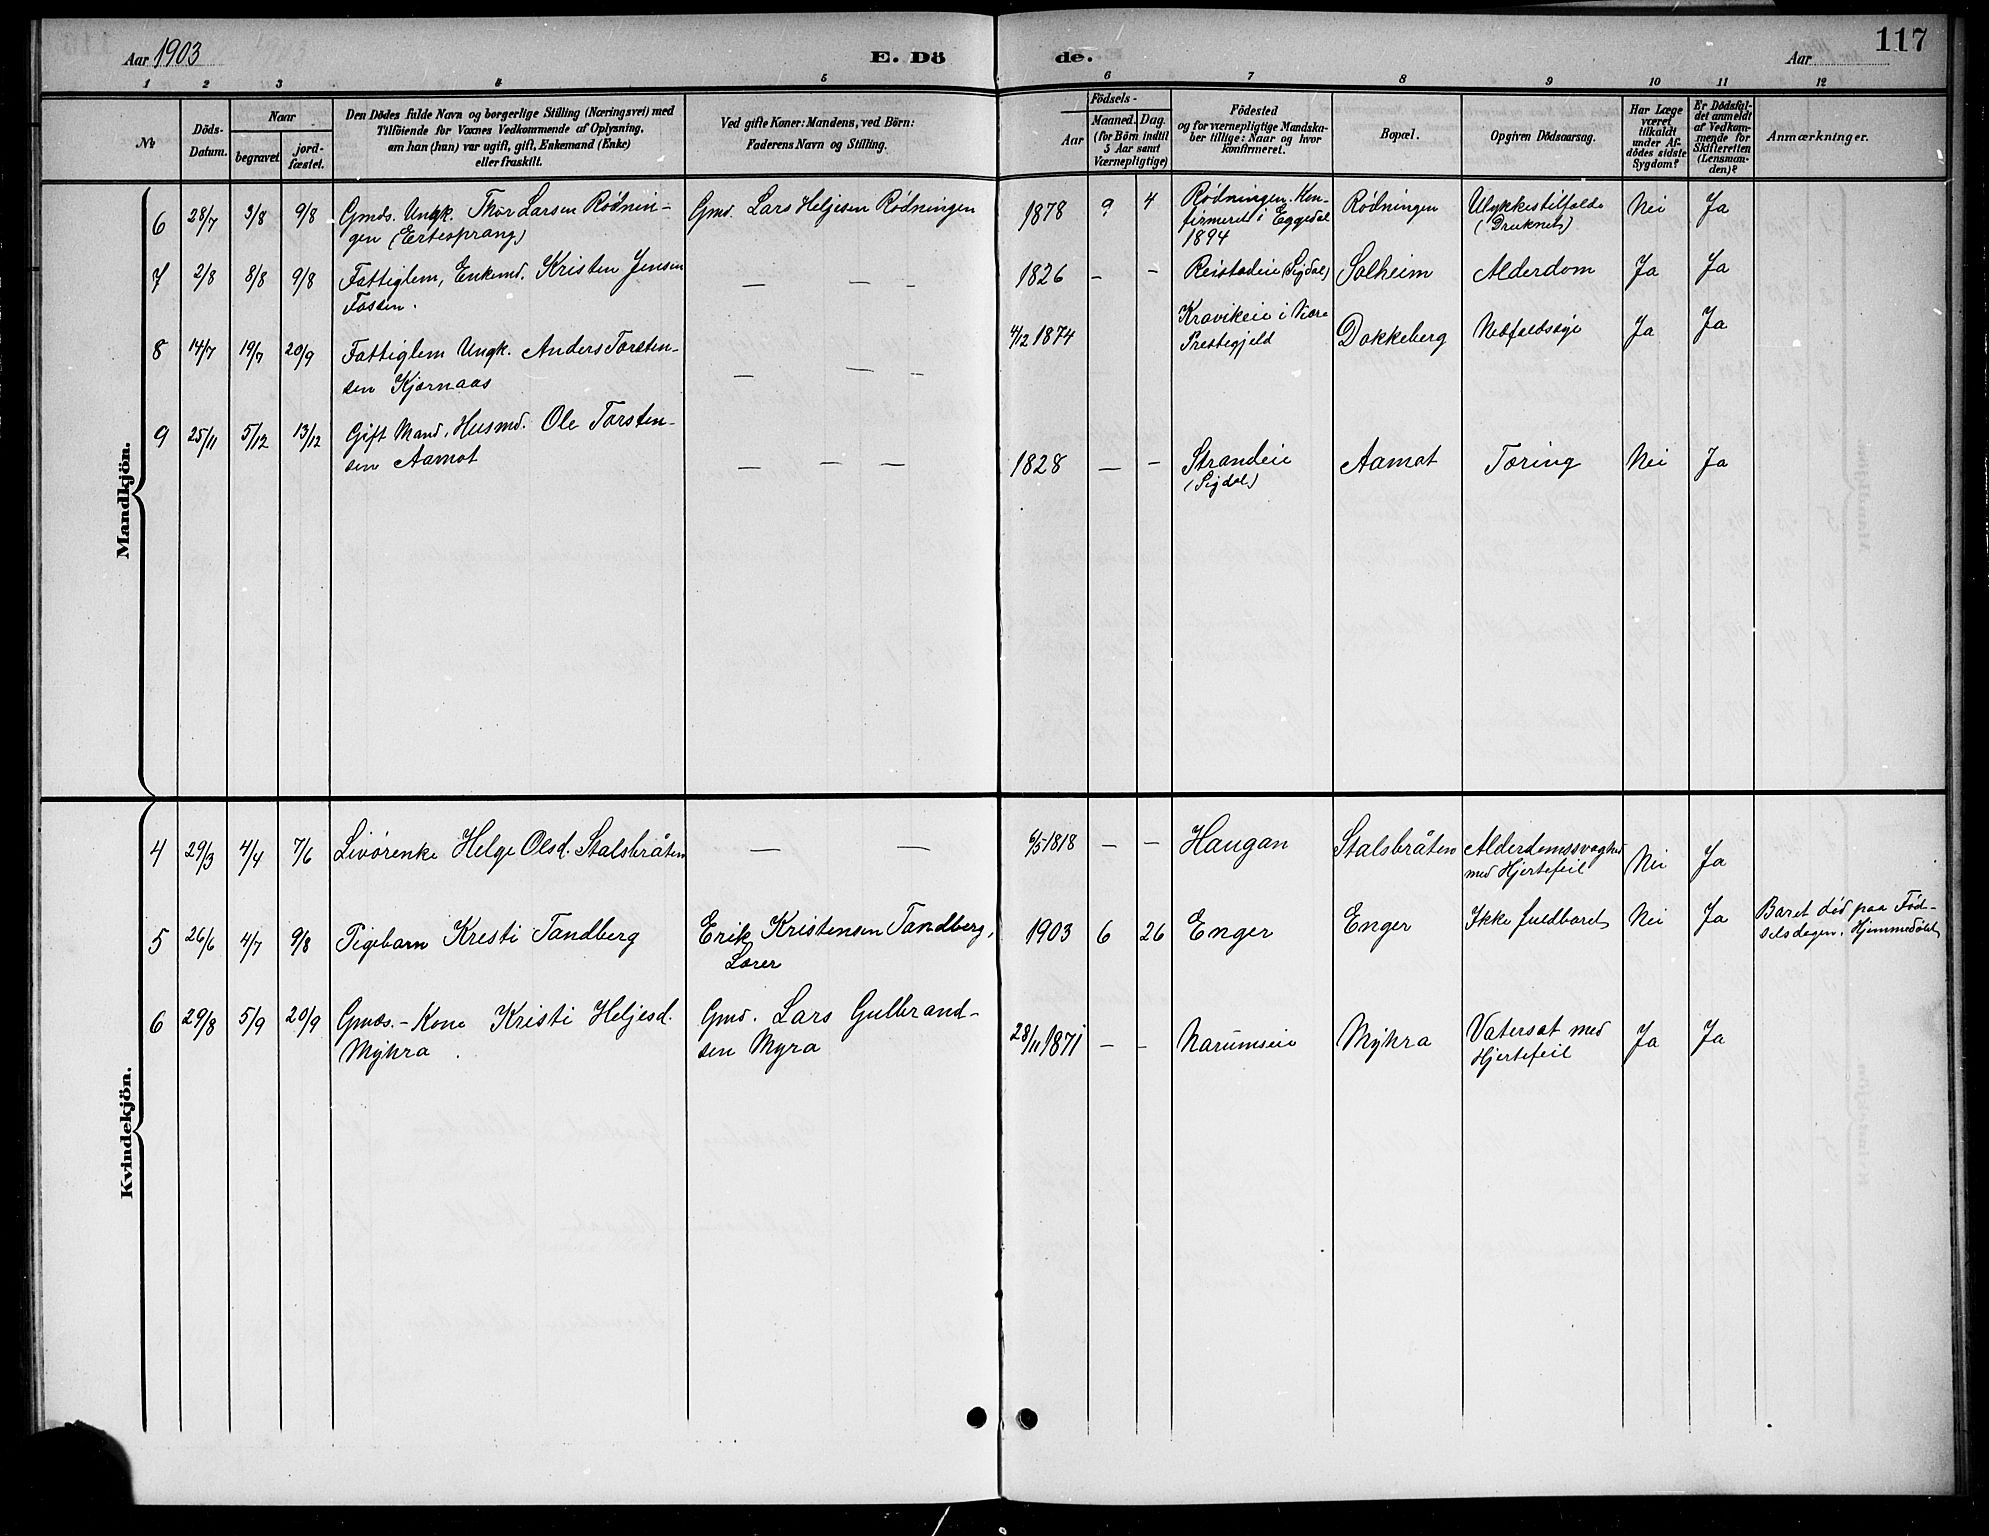 Aar 1903
E. Dö
de.
Aar
117
1 2 3 4 5 6 7 8 9 10 11 12
No
Döds-
Datum.
Naar
begravet.
jord-
fæstet.
Den Dödes fulde Navn og borgerlige Stilling (Næringsvei) med
Tilföiende for Voxnes Vedkommende af Oplysning,
om han (hun) var ugift, gift, Enkemand (Enke)
eller fraskilt.
Ved gifte Koner: Mandens, ved Börn:
Faderens Navn og Stilling.
Födsels-
Aar
Maaned. Dag.
(for Börn indtil
5 Aar samt
Værnepligtige)
Födested
og for værnepligtige Mandska-
ber tillige: Naar og hvor
konfirmeret.
Bopæl.
Opgiven Dödsaarsag.
Har Læge
været
tilkaldt
under Af-
dödes sidste
Sygdom?
Er Dödsfal-
det anmeldt
af Vedkom-
mende for
Skifteretten
(Lensman-
den)?
Anmærkninger.
Mandkjön.
6 28/7 3/8 9/8 Gmds. Ungk. Thor Larsen Rødnin- Gmd. Lars Heljesen Rødningen 1878 9 4 Rødningen. Kon- Rødningen Ulykkestilfælde Nei Ja
gen (Ertesprang) firmeret i Eggedal (Druknet)
1894
7 2/8 8/8 9/8 Fattiglem, Enkemd. Kristen Jensen — — — 1826 — — Reistadeie (Sigdal) Solheim Alderdom Ja Ja
Fossen.
8 14/7 19/7 20/9 Fattiglem Ungk. Anders Torsten- — — — 4/12 1874 Kravikeie i Nore Dokkeberg Nedfaldssyge Ja Ja
sen Kjørnaas Prestegjeld
9 25/11 5/12 13/12 Gift Mand, Husmd. Ole Torsten-
sen Aamot — — — 1828 — — Strandeie Aamot Tæring Nei Ja
(Sigdal)
Kvindekjön.
4 29/3 4/4 7/6 Livørenke Helge Olsd. Stalsbråten — — 6/5 1818 — — Haugan Stalsbråten Alderdomssvaghed Nei Ja
med Hjertefeil
5 26/6 4/7 9/8 Pigebarn Kresti Tandberg Erik Kristensen Tandberg, 1903 6 26 Enger Enger Ikke fuldbaret Nei Ja Baret død paa Fød-
Lærer selsdagen. Hjemmedøbt
6 29/8 5/9 20/9 Gmds.-Kone Kristi Heljesd. Gmd. Lars Gulbrand- 28/11 1871 — — Narumseie Myhra Vatersot med Ja Ja
Myhra. sen Myra Hjertefeil